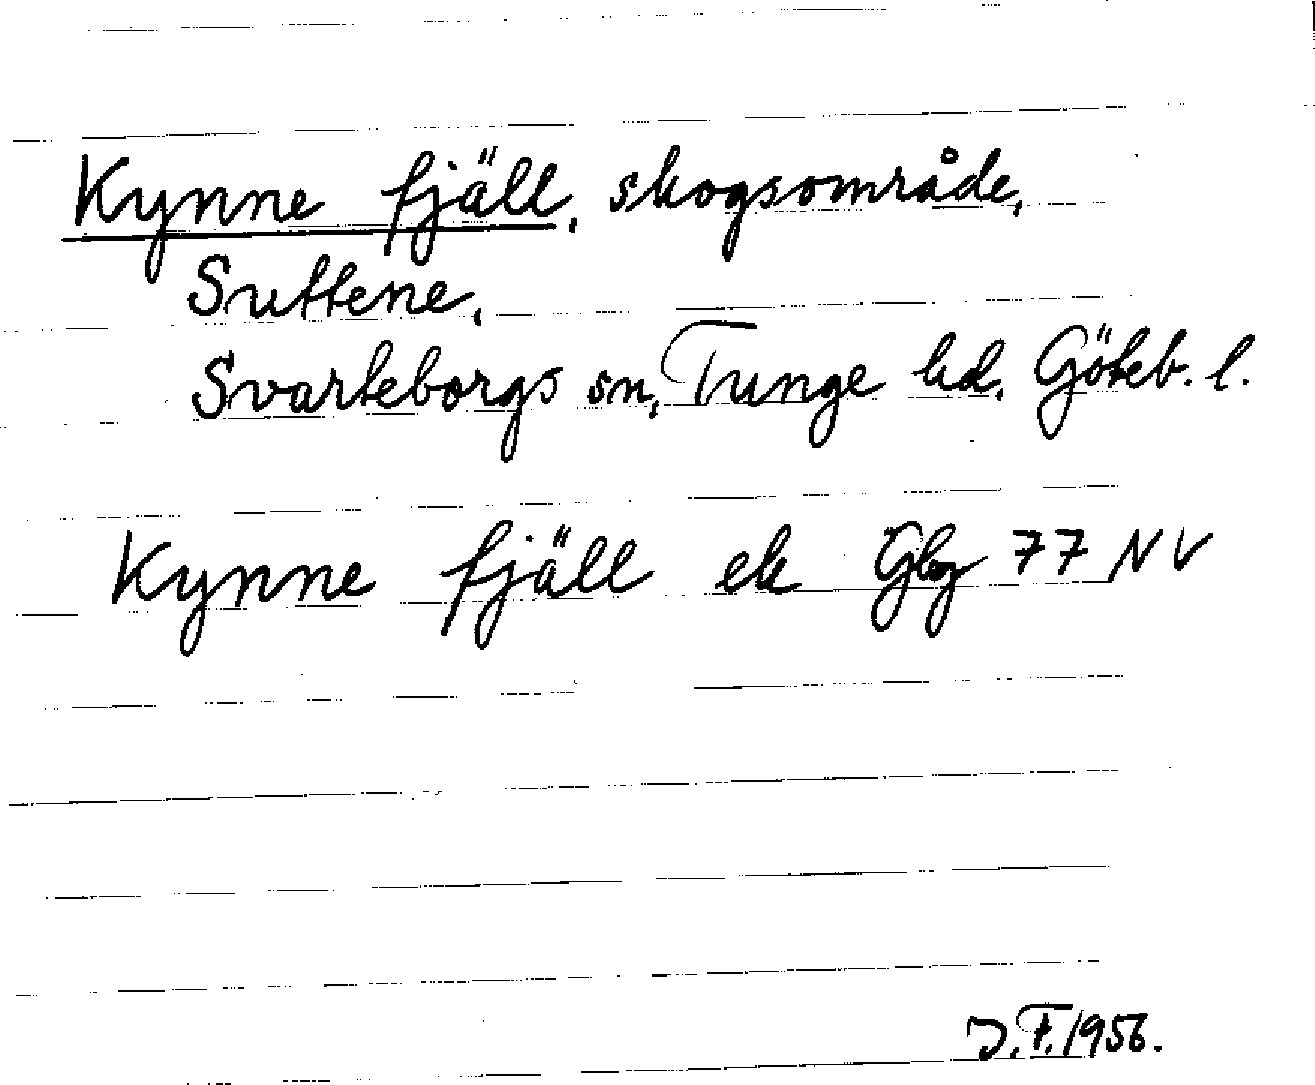 Kynne fjäll, skogsområde,
Suttene,
Svarteborgs sn, Tunge hd, Göteb. l.
Kynne fjäll ek Gbg 77 NV
J.F. 1956.